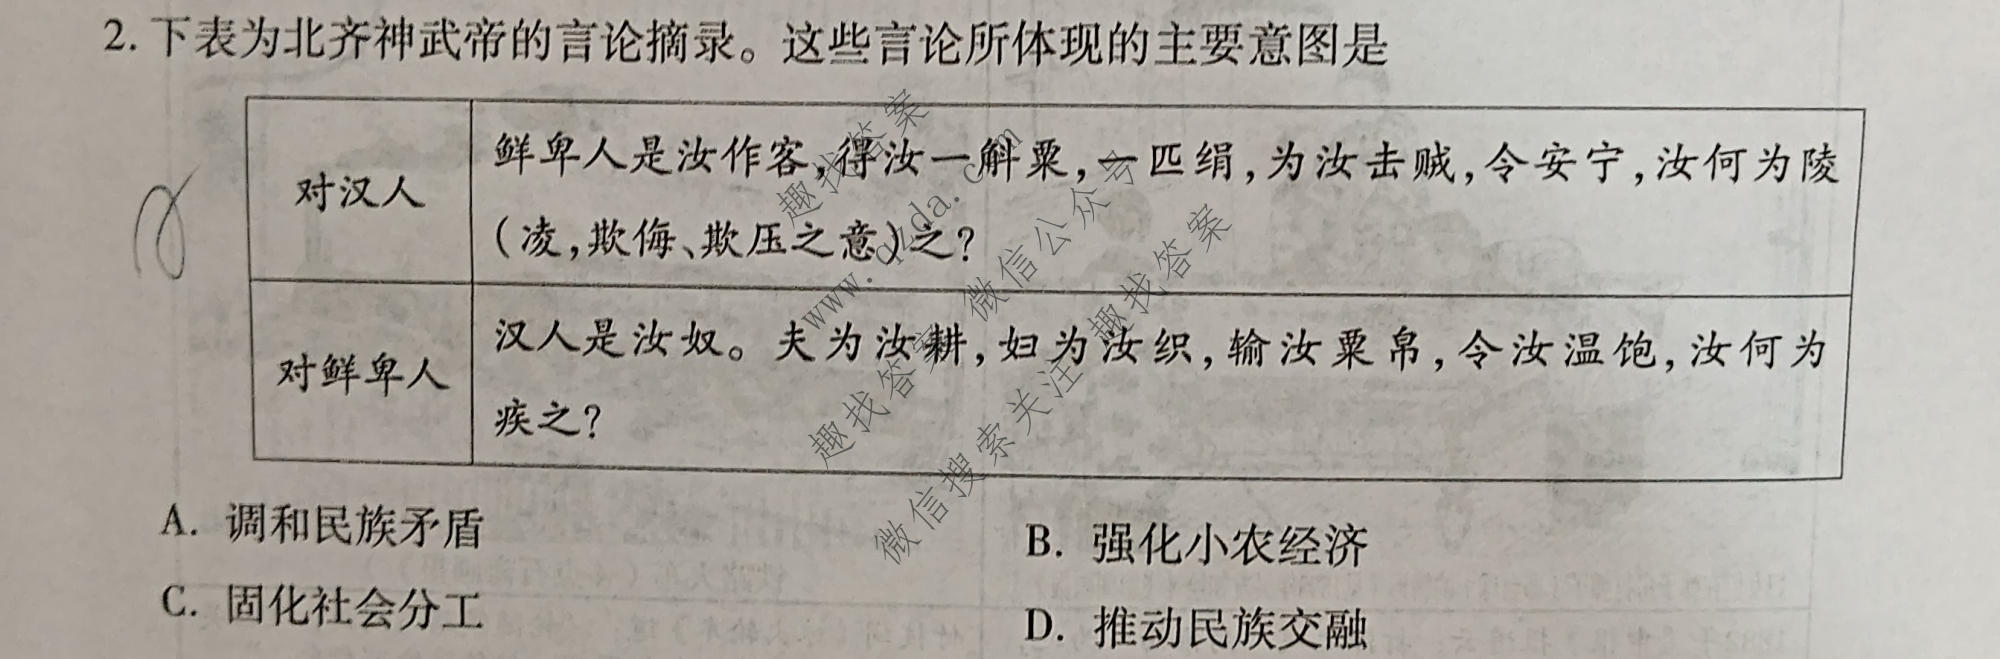 2. 下表为北齐神武帝的言论摘录。这些言论所体现的主要意图是
对汉人
鲜卑人是汝作客,得汝一斛粟,一匹绢,为汝击贼,令安宁,汝何为陵
(凌,欺侮、欺压之意)之?
对鲜卑人
汉人是汝奴。夫为汝耕,妇为汝织,输汝粟帛,令汝温饱,汝何为
疾之?
A. 调和民族矛盾
B. 强化小农经济
C. 固化社会分工
D. 推动民族交融
趣找答案
www.qzda.com
微信公众号
趣找答案
微信搜索关注
趣找答案